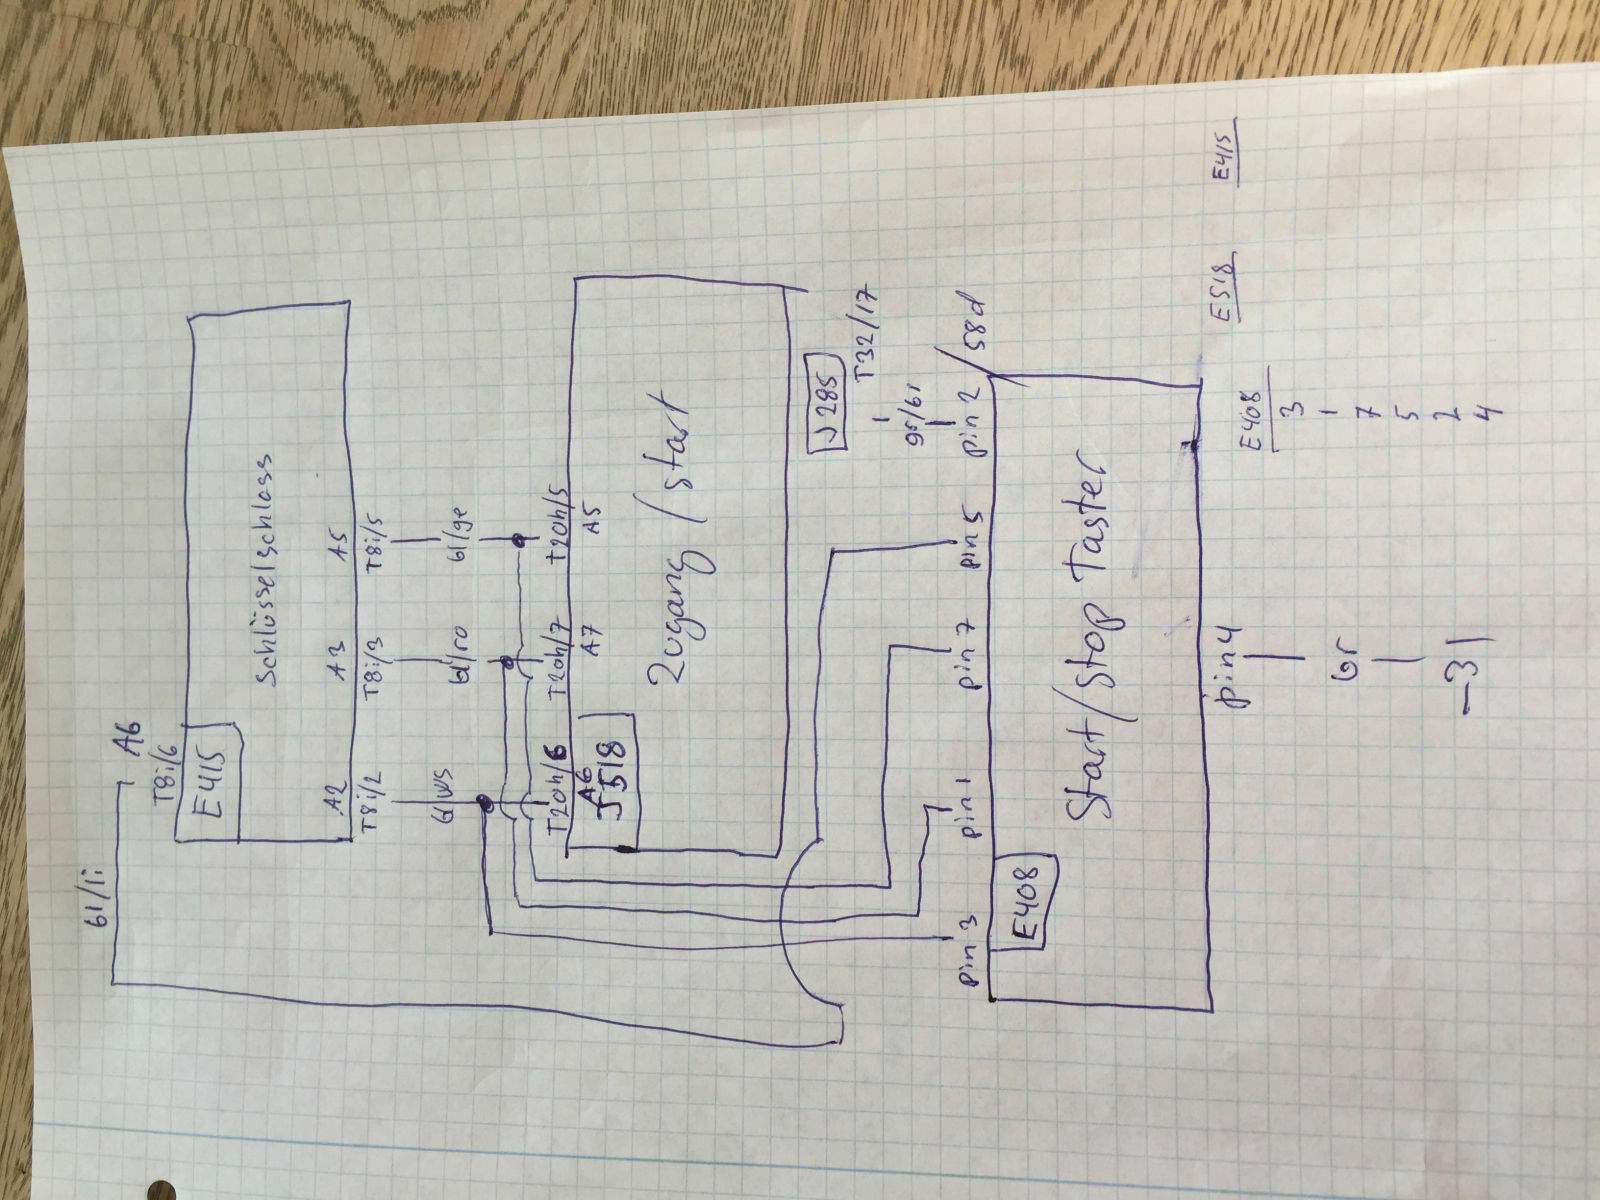 bl/li
A6
T8i/6
E415
Schlüsselschloss
A2
A3
A5
T8i/2
T8i/3
T8i/5
bl/ws
bl/ro
bl/ge
T20h/6
T20h/7
T20h/5
A6
A7
A5
J518
Zugang/Start
J285
T32/17
gr/bl
58d
pin 3
pin 1
pin 7
pin 5
pin 2
E408
Start/Stop Taster
pin 4
br
-31
E408
E518
E415
3
1
7
5
2
4